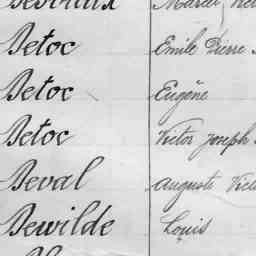 Detoc Emile Pierre
Detoc Eugène
Detoc Victor Joseph
Deval Auguste
Dewilde Louis